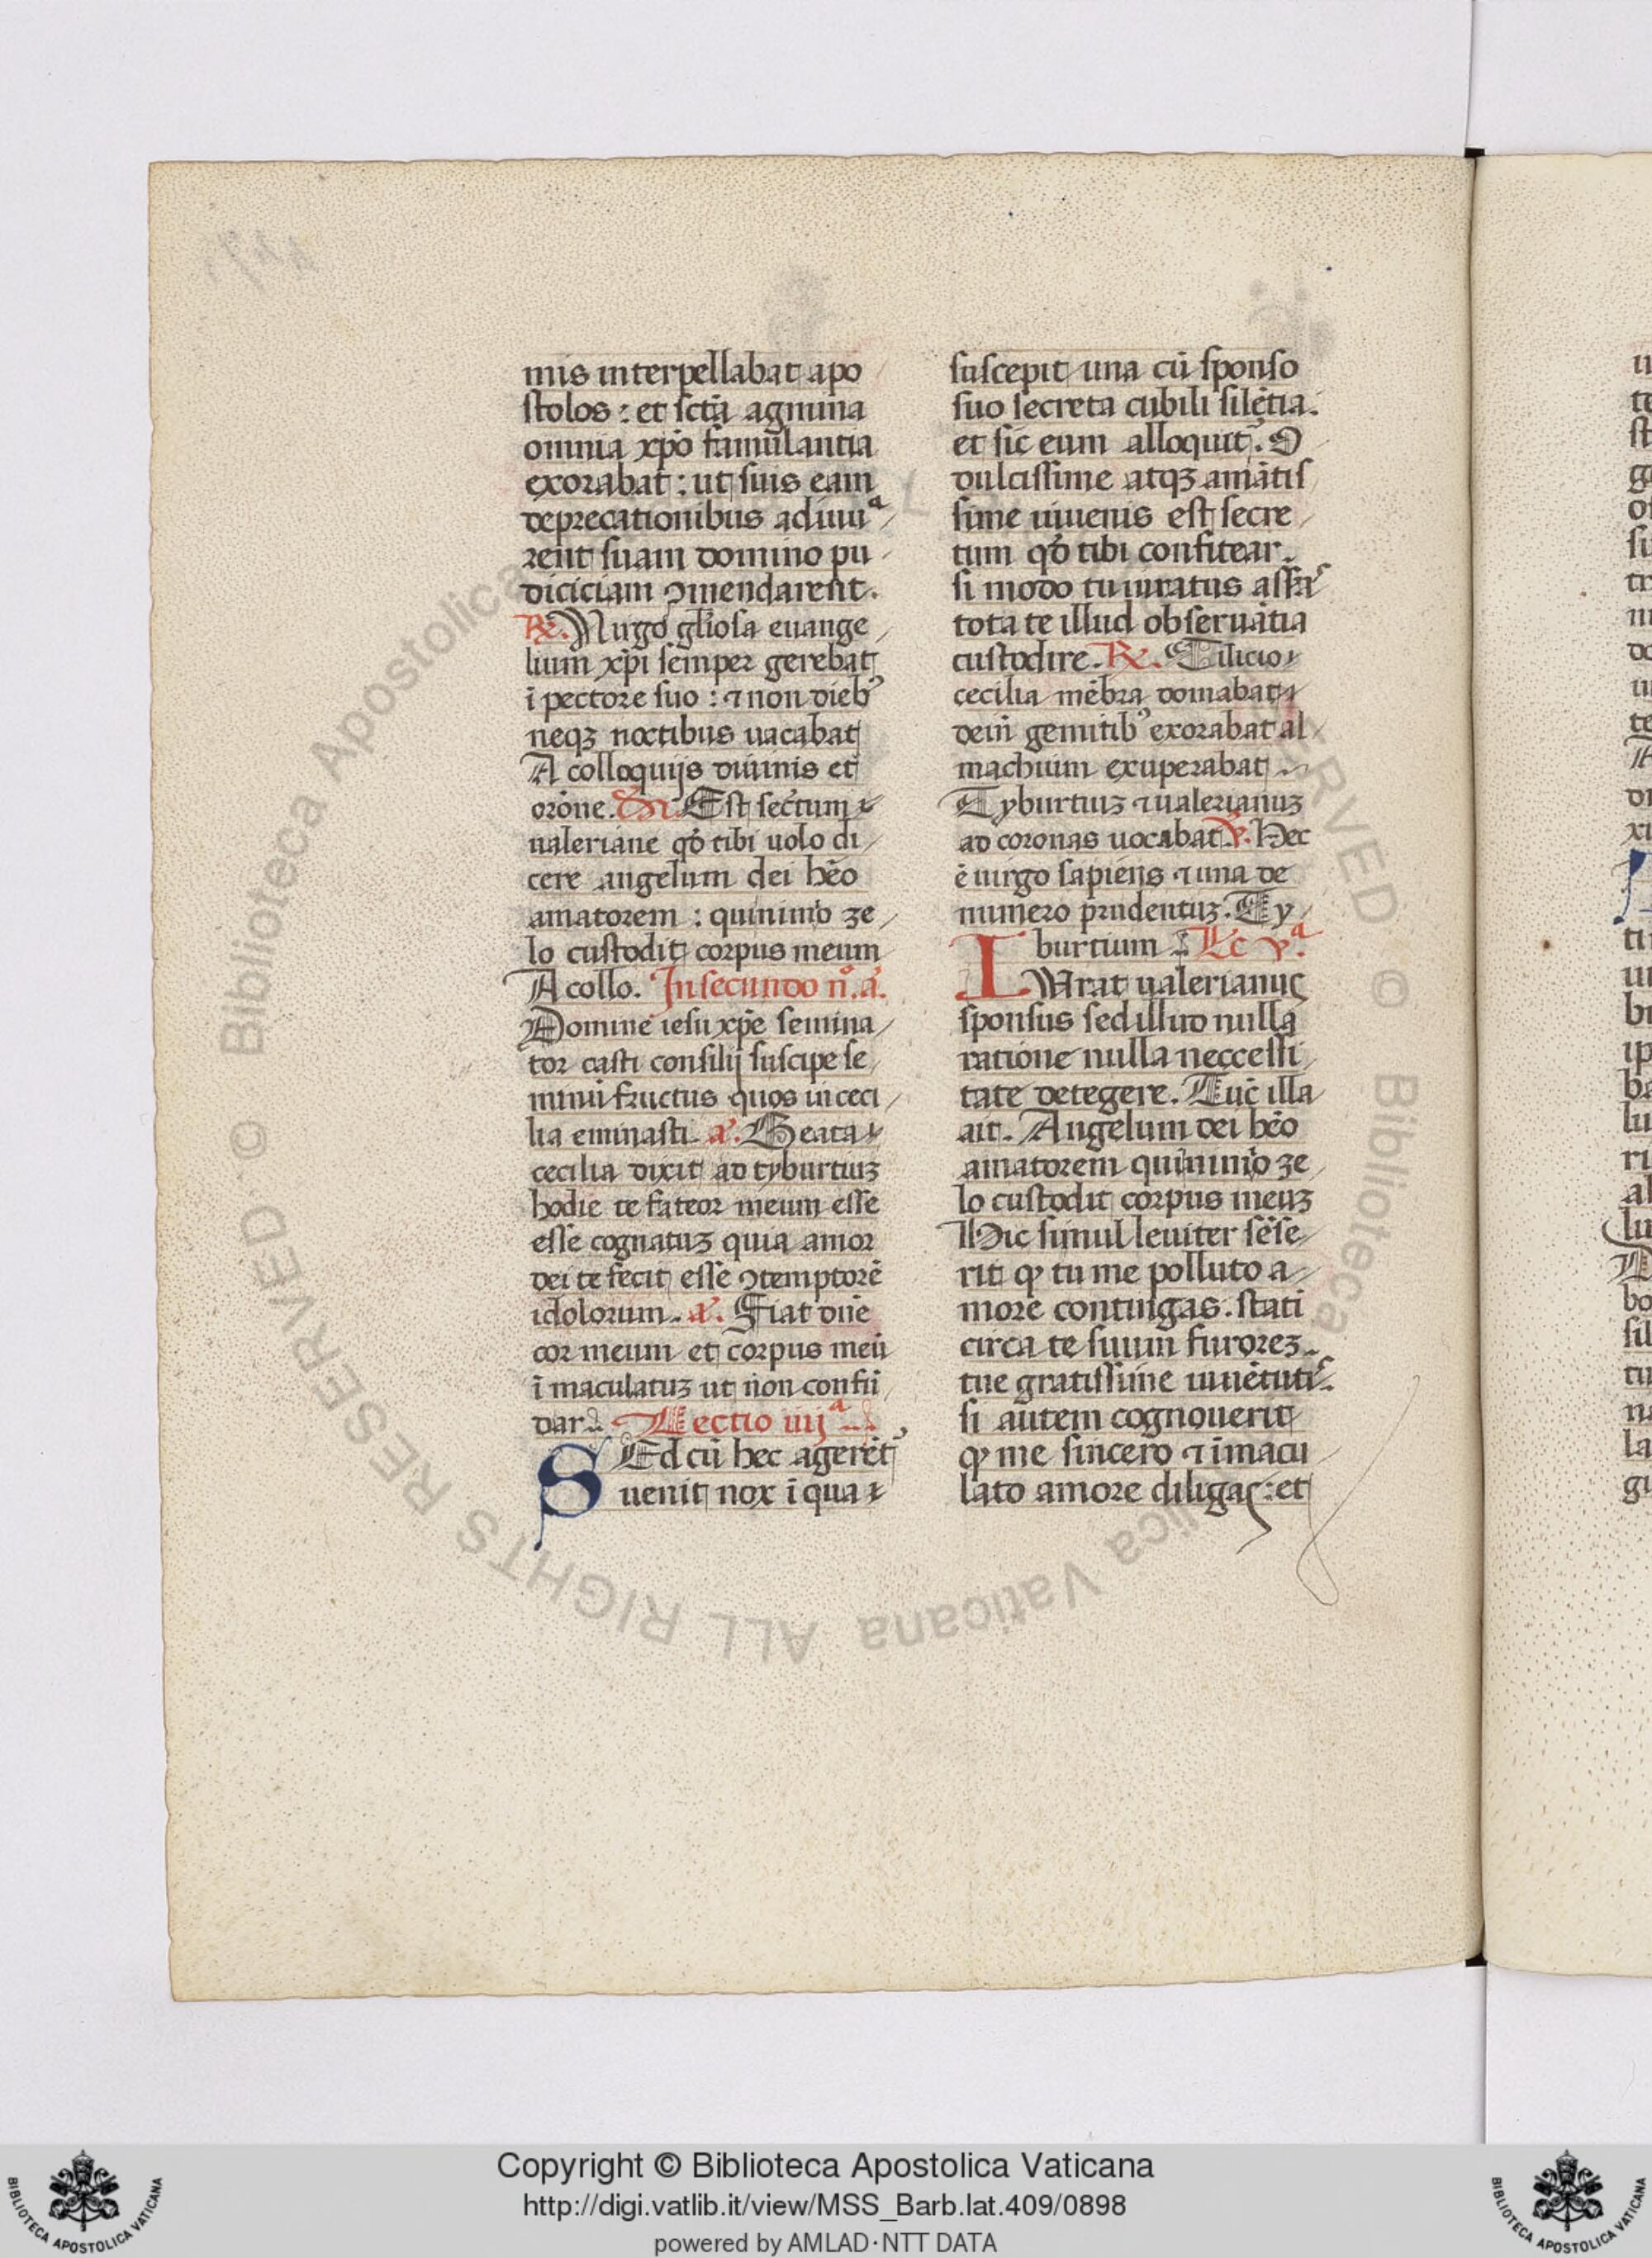 mis interpellabat apo
stolos : et sctā agmina
omnia xp̄o famulantia
exorabat : ut suis eam
deprecationibus adiuuᵃ
rent suam domino pu
diciciam ꝯmendarent.
℟. Virgo gl̄iosa euange
lium xp̄i semper gerebat
ī pectore suo : ⁊ non dieb᾽
neqꝫ noctibus uacabat
A colloquijs diuinis et
orōne. Est sec̄tum
ualeriane qḋ tibi uolo di
cere angelum dei hēo
amatorem : quinimo ze
lo custodit corpus meum
A collo. In secundo n̊. a̓.
Domine iesu xp̄e semina
tor casti consilij suscipe se
minū fructus quos in ceci
lia eminasti. a̓. Beata
cecilia dixit ad tyburtiuꝫ
hodie te fateor meum esse
esse cognatuꝫ quia amor
dei te fecit esse ꝯtemptorē
idolorum. a̓. Fiat dn̄e
cor meum et corpus meū
ī maculatuꝫ ut non confū
dar. Lectio iiijᵃ
SEd cū hec agerēt᾽
uenit nox ī qua
suscepit una cū sponso
suo secreta cubili silētia.
et sic eum alloquit᾽. O
dulcissime atqꝫ amātis
sime iuuenis est secre
tum qḋ tibi confitear.
si modo tu iuratus
tota te illud obseruātia
custodire. ℟. Cilicio
cecilia mēbra domabat
deū gemitib᾽ exorabat al
machium exuperabat
Tyburtiuꝫ ⁊ ualerianuꝫ
ad coronas uocabat. ℣. Hec
ē uirgo sapiens ⁊ una de
numero prudentuꝫ. Ty
burtium Lc̄ vᵃ.
IVrat ualerianus
sponsus sed illiro nulla
ratione nulla neccessi
tate detegere. Tūc illa
ait. Angelum dei hēo
amatorem quinimo ze
lo custodit corpus meuꝫ
Hic simul leuiter sēse
rit ꝙ tu me polluto a
more contingas. stati
circa te suum furoreꝫ
tue gratissime iuuētuti᾽.
si autem cognouerit
ꝙ me sincero ⁊ īmacu
lato amore diligas : et
Copyright © Biblioteca Apostolica Vaticana
http://digi.vatlib.it/view/MSS_Barb.lat.409/0898
powered by AMLAD·NTT DATA